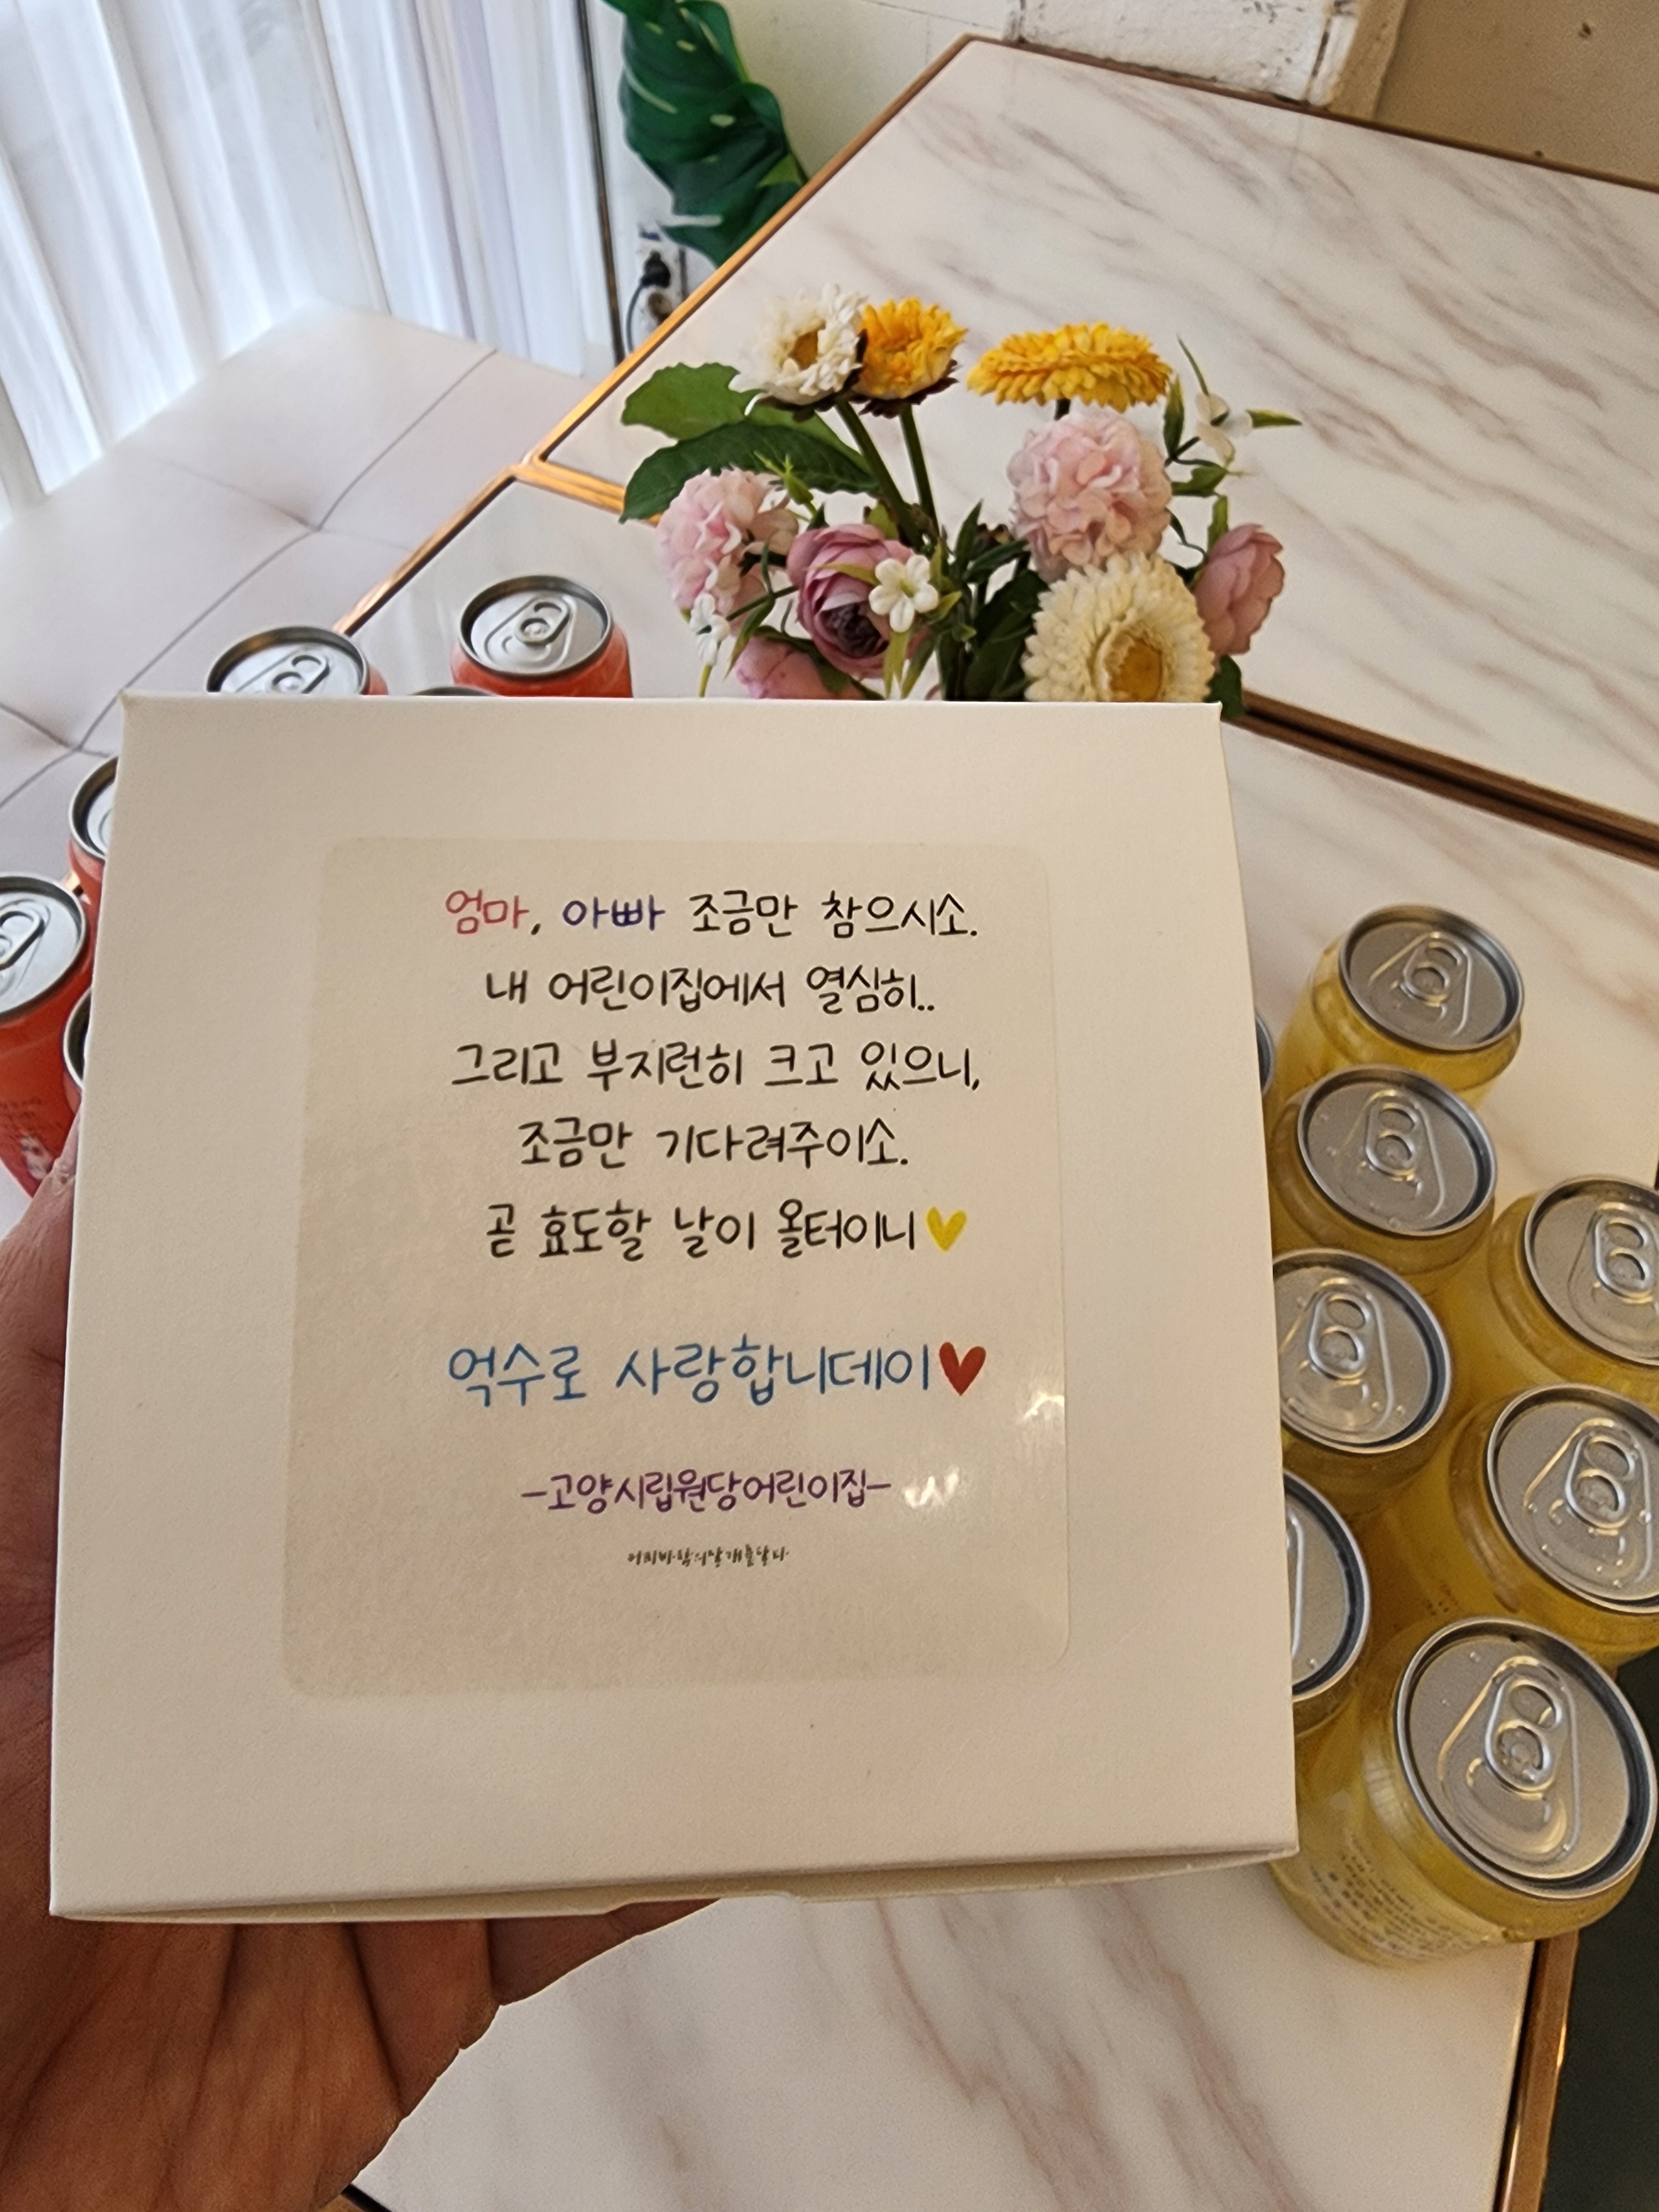 엄마, 아빠 조금만 참으시소.
내 어린이집에서 열심히..
그리고 부지런히 크고 있으니,
조금만 기다려주이소.
곧 효도할 날이 올터이니💛
억수로 사랑합니데이❤
-고양시립원당어린이집-